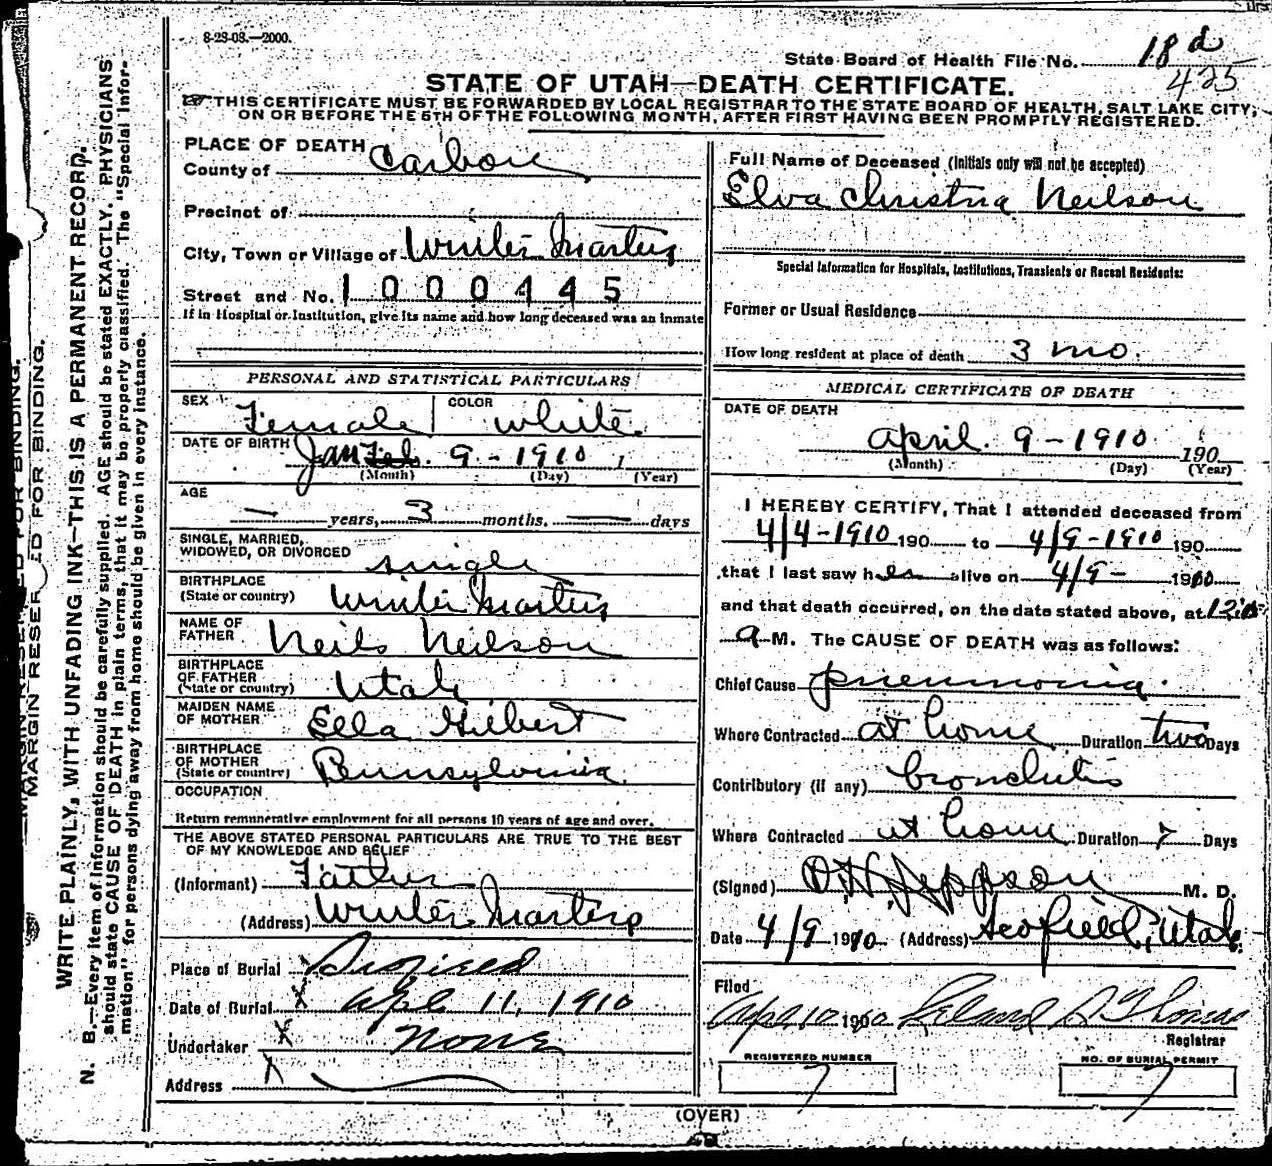 8-23-08.—2000.
State Board of Health File No. 18 d
425
STATE OF UTAH—DEATH CERTIFICATE.
☞ THIS CERTIFICATE MUST BE FORWARDED BY LOCAL REGISTRAR TO THE STATE BOARD OF HEALTH, SALT LAKE CITY,
ON OR BEFORE THE 5TH OF THE FOLLOWING MONTH, AFTER FIRST HAVING BEEN PROMPTLY REGISTERED.
PLACE OF DEATH
County of Carbon
Precinct of
City, Town or Village of Winter Quarters
Street and No. 1000445
If in Hospital or Institution, give its name and how long deceased was an inmate
PERSONAL AND STATISTICAL PARTICULARS
SEX Female COLOR white
DATE OF BIRTH Jan Feb. 9 - 1910 1
(Month) (Day) (Year)
AGE
— years, 3 months. — days
SINGLE, MARRIED,
WIDOWED, OR DIVORCED single
BIRTHPLACE
(State or country) Winter Quarters
NAME OF
FATHER Neils Neilson
BIRTHPLACE
OF FATHER
(State or country) Utah
MAIDEN NAME
OF MOTHER Ella Gilbert
BIRTHPLACE
OF MOTHER
(State or country) Pennsylvania
OCCUPATION
Return remunerative employment for all persons 10 years of age and over.
THE ABOVE STATED PERSONAL PARTICULARS ARE TRUE TO THE BEST
OF MY KNOWLEDGE AND BELIEF
(Informant) Father
(Address) Winter Quarters
Place of Burial
Date of Burial x Apl 11, 1910
Undertaker x None
Address x
Full Name of Deceased (Initials only will not be accepted)
Elva Christina Neilson
Special Information for Hospitals, Institutions, Transients or Recent Residents:
Former or Usual Residence
How long resident at place of death 3 mo.
MEDICAL CERTIFICATE OF DEATH
DATE OF DEATH
April. 9 - 1910 190
(Month) (Day) (Year)
I HEREBY CERTIFY, That I attended deceased from
4/4-1910 190 to 4/9-1910 190
that I last saw her alive on 4/9- 1910
and that death occurred, on the date stated above, at
a M. The CAUSE OF DEATH was as follows:
Chief Cause pneumonia.
Where Contracted at home Duration two Days
Contributory (if any) bronchitis
Where Contracted at home Duration 7 Days
(Signed) Jeppson M. D.
Date 4/9 1910 (Address) Scofield, Utah.
Filed
Apl. 10 1910 Leland Thomas
Registrar
REGISTERED NUMBER
7
NO. OF BURIAL PERMIT
7
(OVER)
MARGIN RESERVED FOR BINDING.
WRITE PLAINLY, WITH UNFADING INK—THIS IS A PERMANENT RECORD.
N. B.—Every item of information should be carefully supplied. AGE should be stated EXACTLY. PHYSICIANS
should state CAUSE OF DEATH in plain terms, that it may be properly classified. The "Special Infor-
mation" for persons dying away from home should be given in every instance.